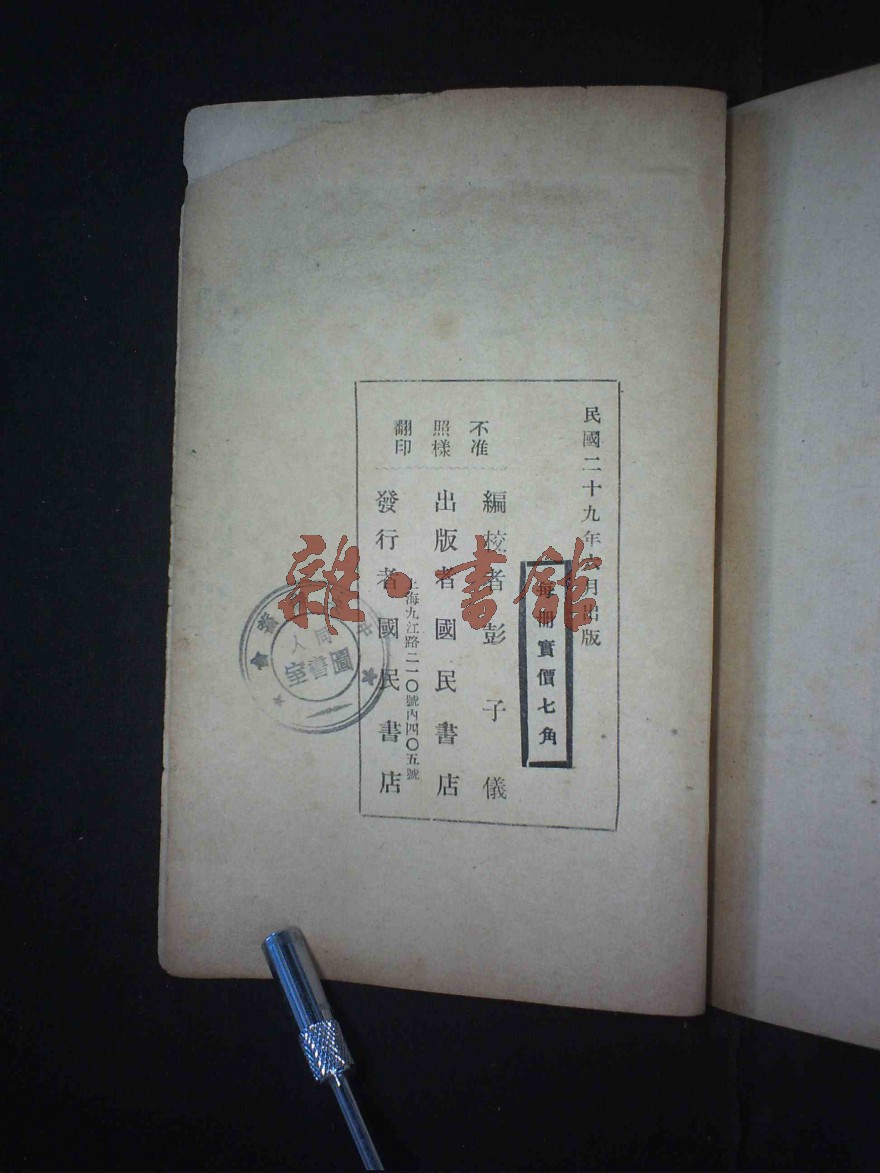 民國二十九年六月出版
每冊實價七角
不准
照樣
翻印
編校者彭子儀
出版者國民書店
上海九江路二一〇號內四〇五號
發行者國民書店
雜·書館
同人
圖書室